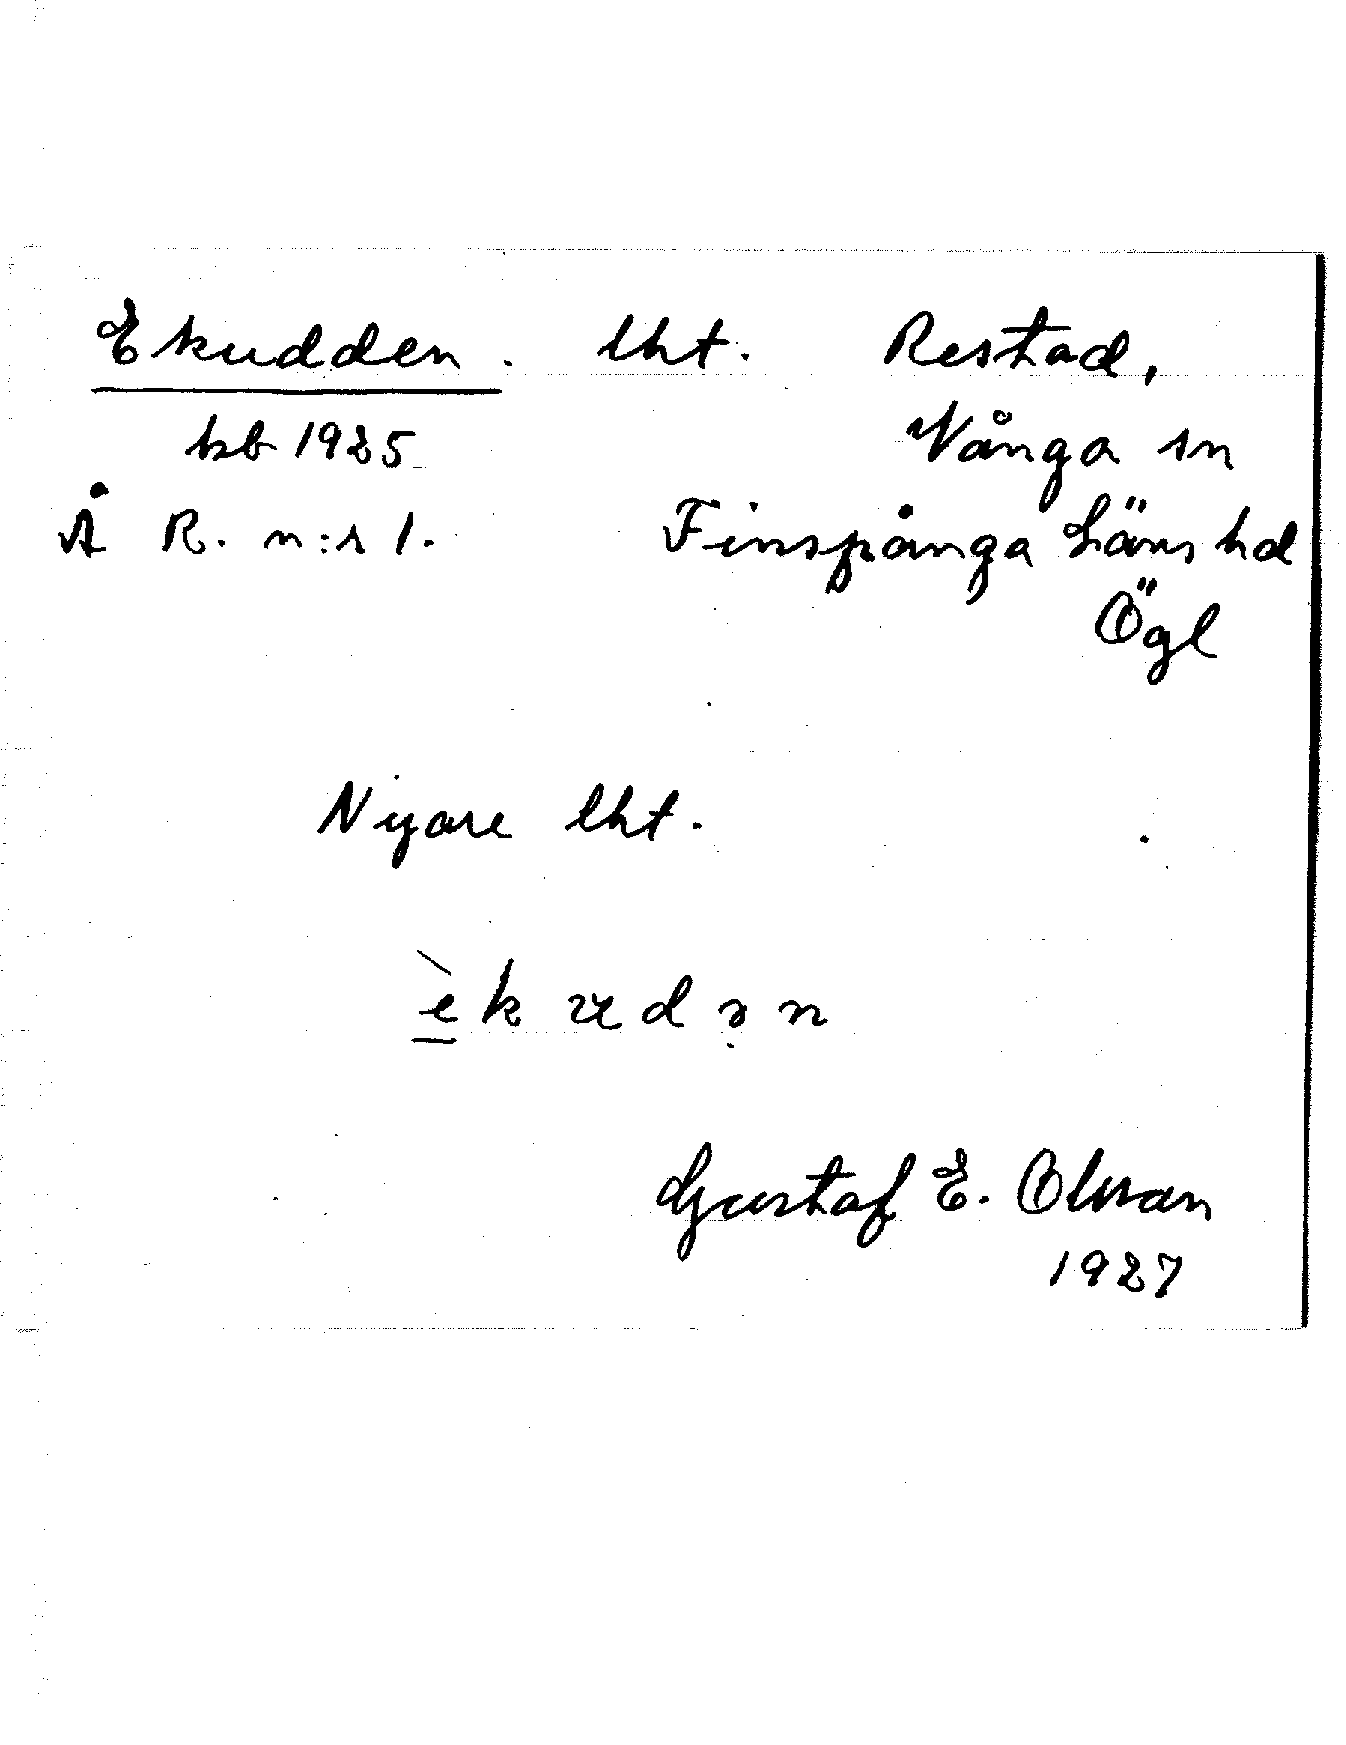 Ekudden. lht. Restad,
kb 1925 Vånga sn
Å R. n:r 1. Finspånga Läns hd
Ögl
Nyare lht.
èkudən
Gustaf E. Olsson
1927